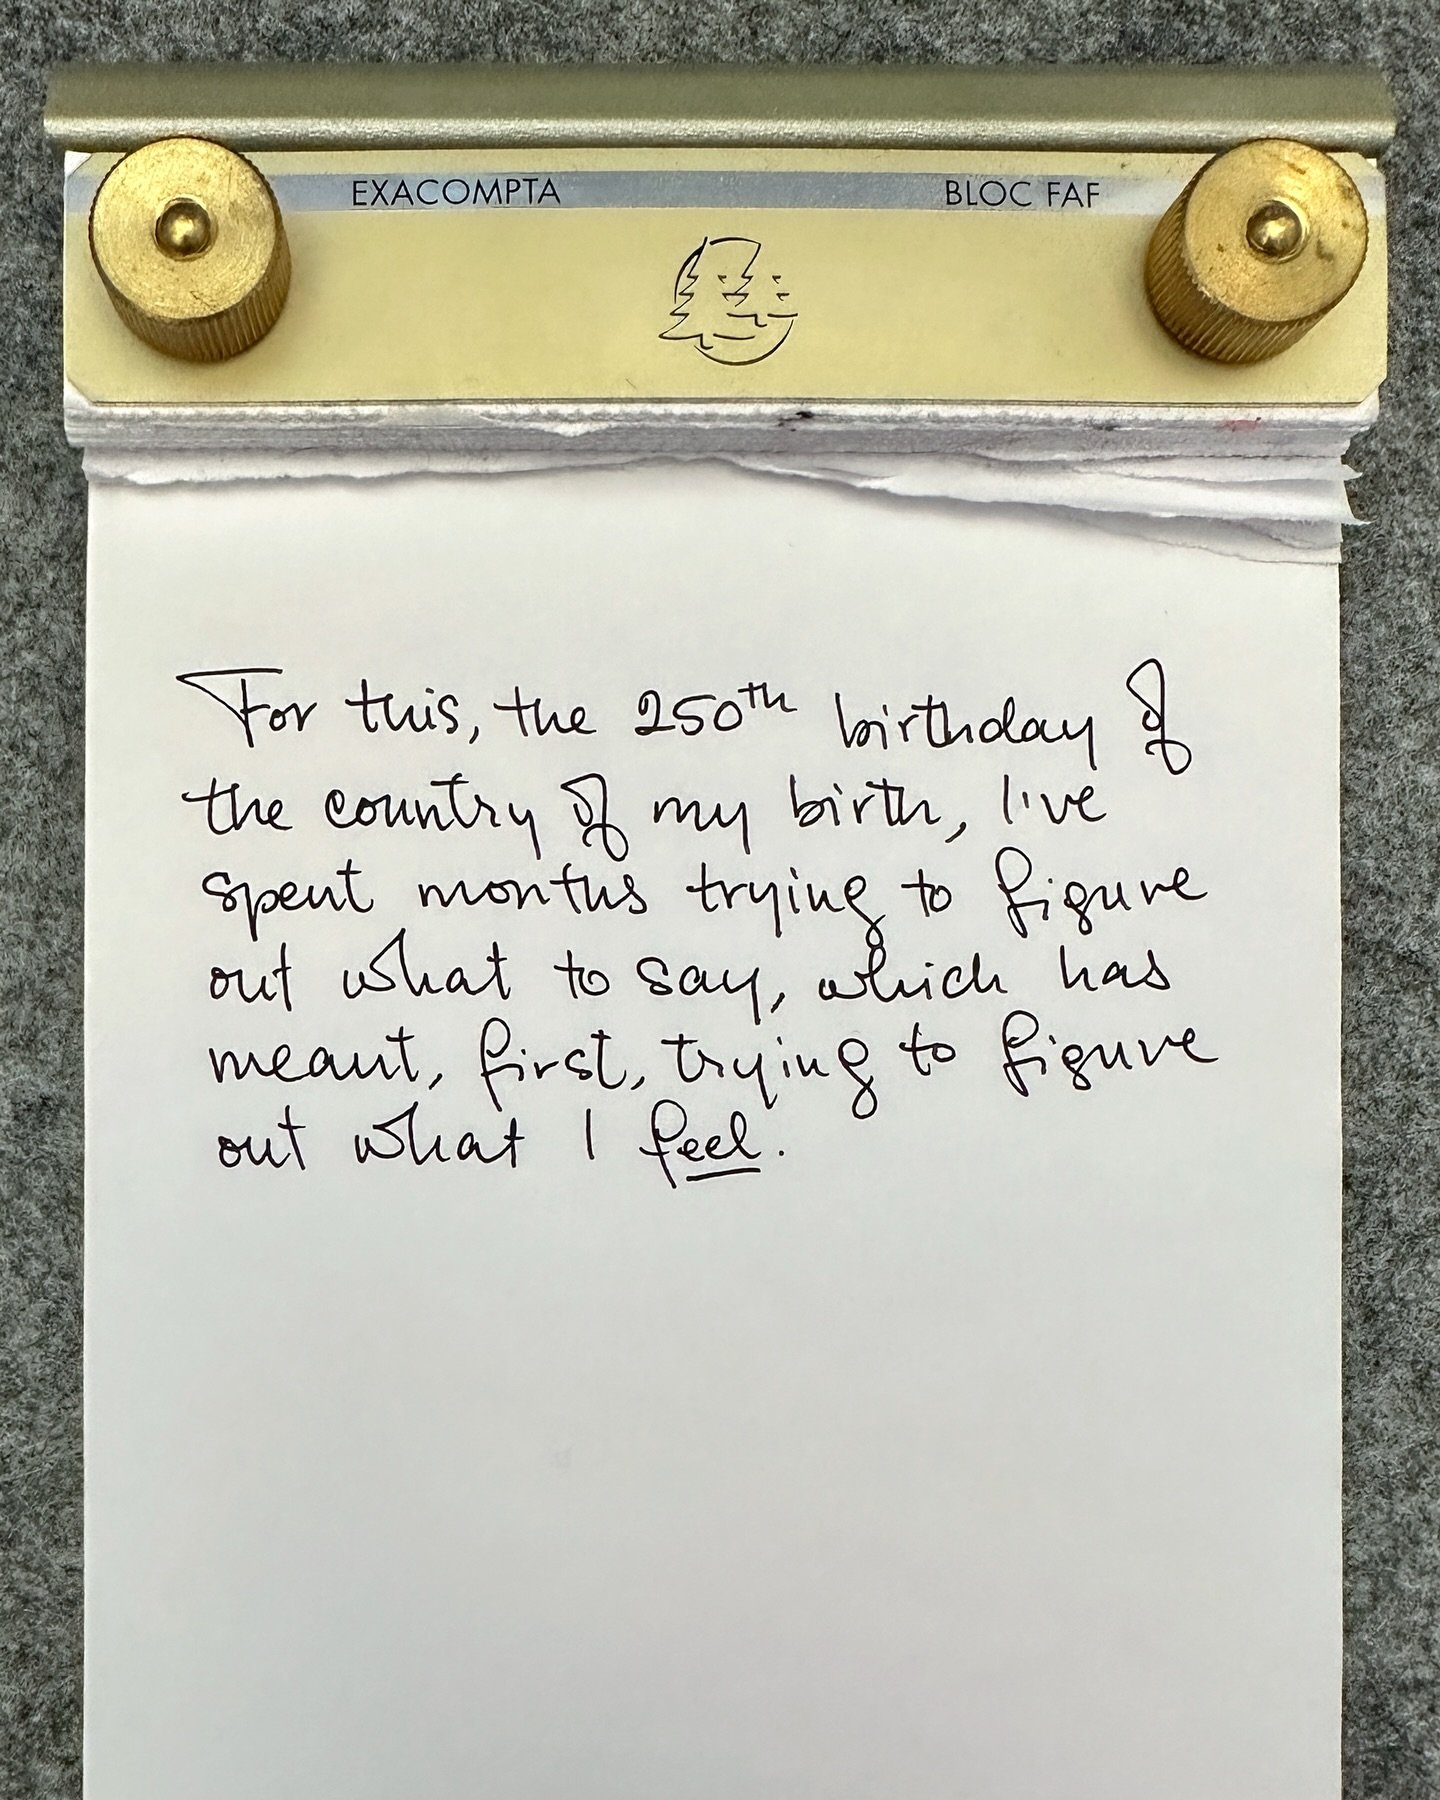 EXACOMPTA BLOC FAF
For this, the 250th birthday of
the country of my birth, I've
spent months trying to figure
out what to say, which has
meant, first, trying to figure
out what I feel.